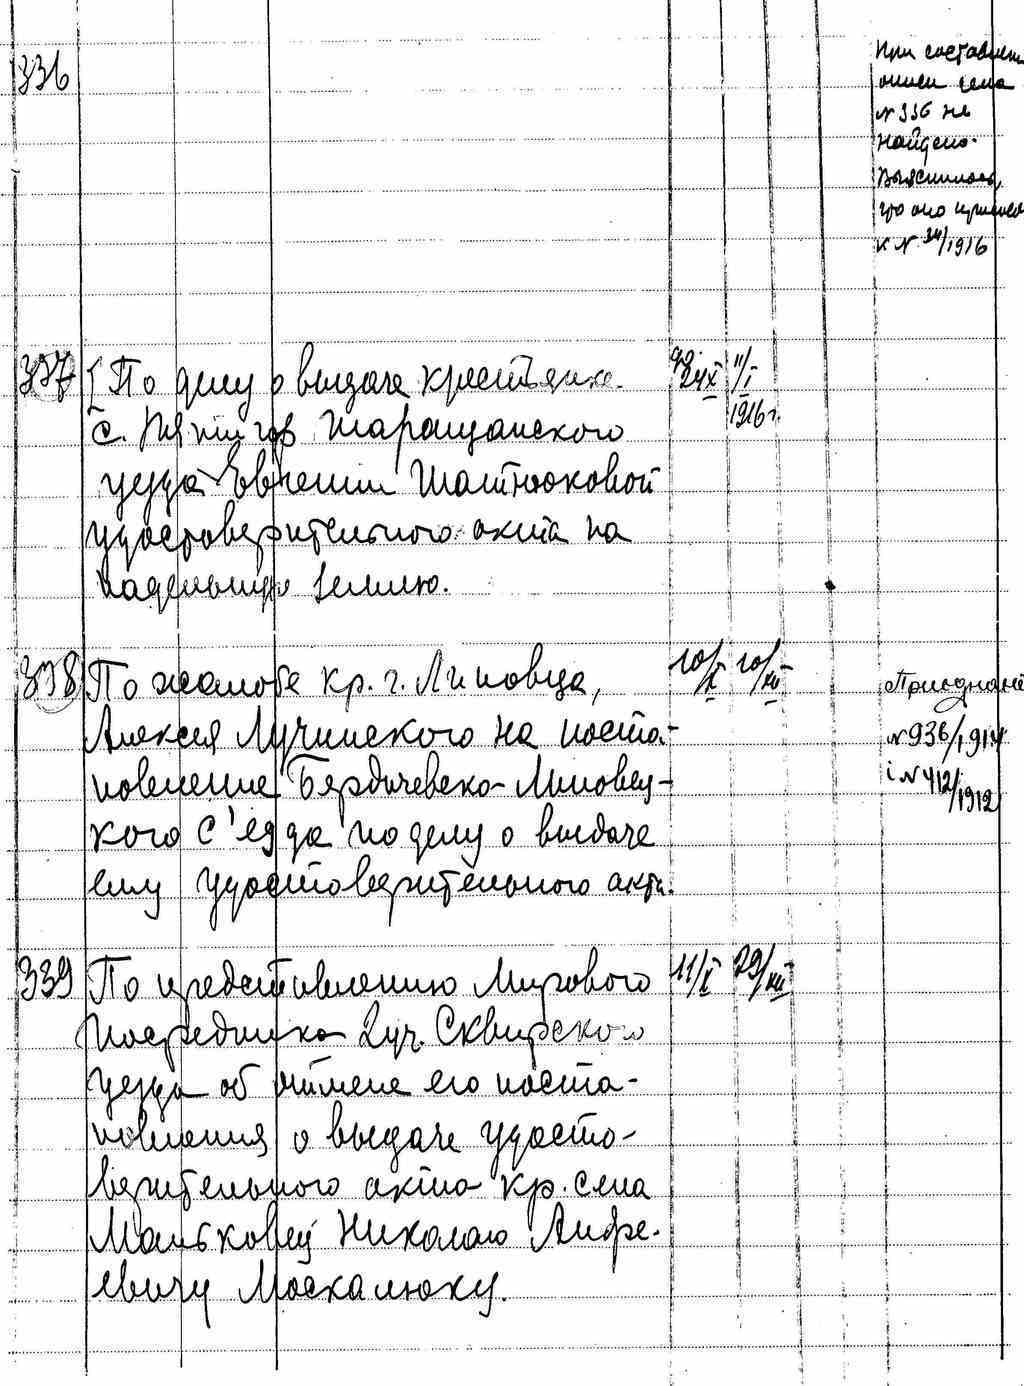 336
При составлен
описи дело
№ 336 не
найдено.
Выяснилось,
что оно присоед
к № 34/1916
337 По делу о выдаче крестьянке 24/X 11/I
с. Пятигор Таращанского 1916 г.
уезда Евгении Шатнюковой
удостоверительного акта на
надельную землю.
338 По жалобе кр. г. Липовца, 10/X 10/XII
Алексея Лучинского на поста-
новление Бердичевско-Липовец-
кого с'езда по делу о выдаче
ему удостоверительного акта.
Приєднані
№ 936/1914
і № 412/1912
339 По представлению Мирового 11/X 29/XII
Посредника 2 уч. Сквирского
уезда об отмене его поста-
новления о выдаче удосто-
верительного акта кр. села
Маньковец Николаю Андре-
евичу Москалюку.